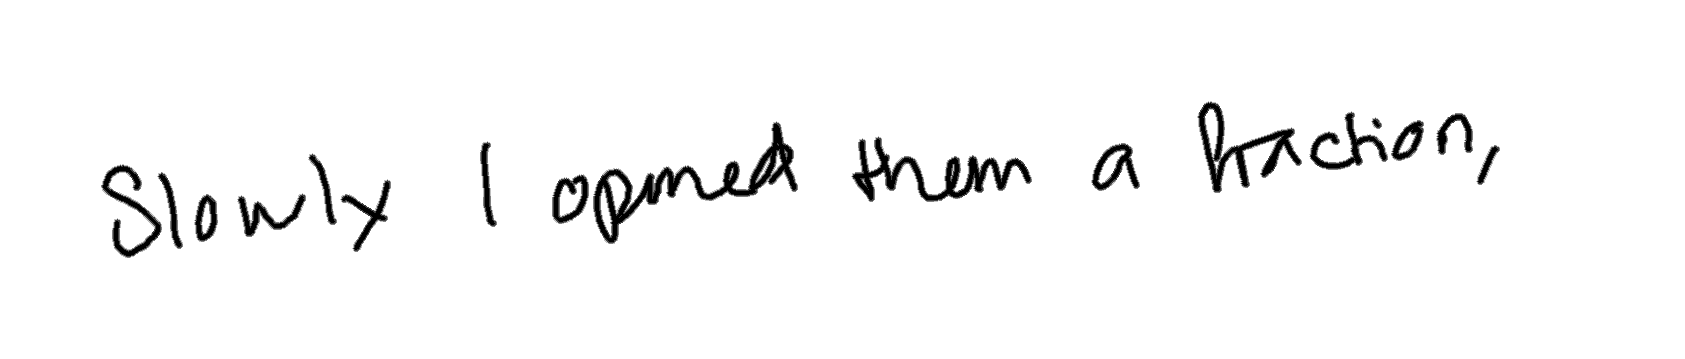 Slowly I opened them a fraction,